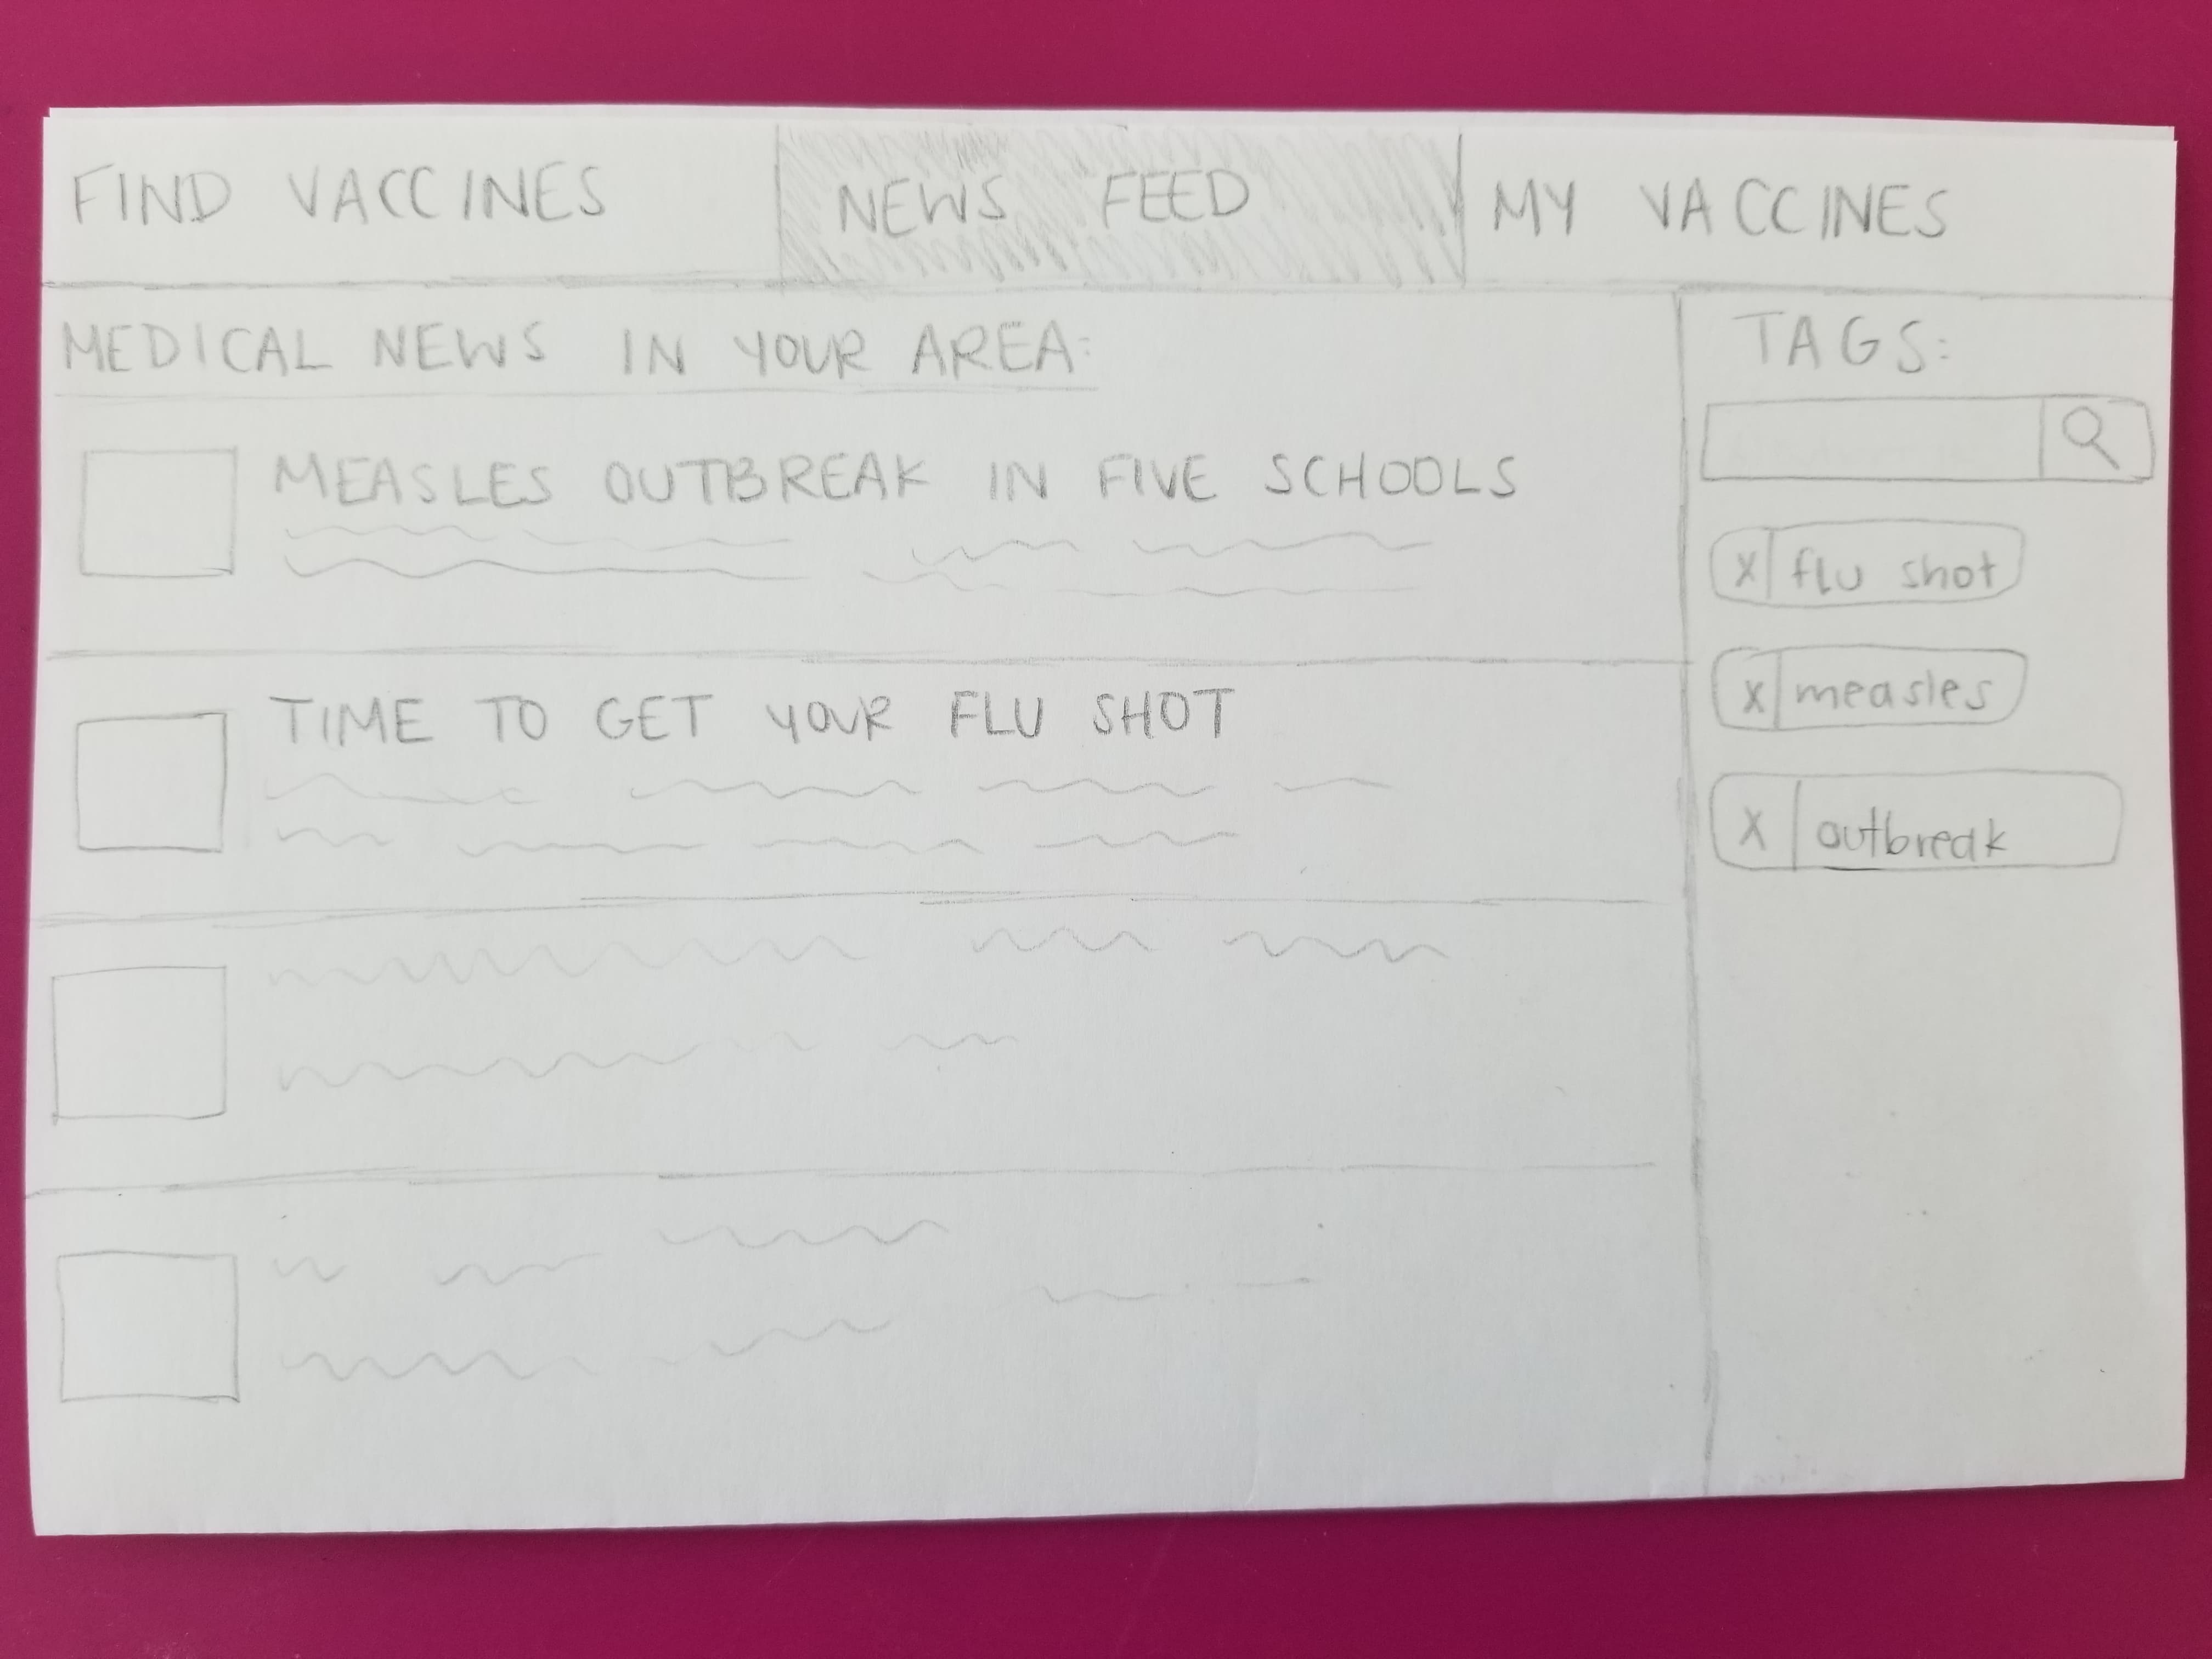 FIND VACCINES NEWS FEED MY VACCINES
MEDICAL NEWS IN YOUR AREA:
MEASLES OUTBREAK IN FIVE SCHOOLS
TIME TO GET YOUR FLU SHOT
TAGS:
X flu shot
X measles
X outbreak